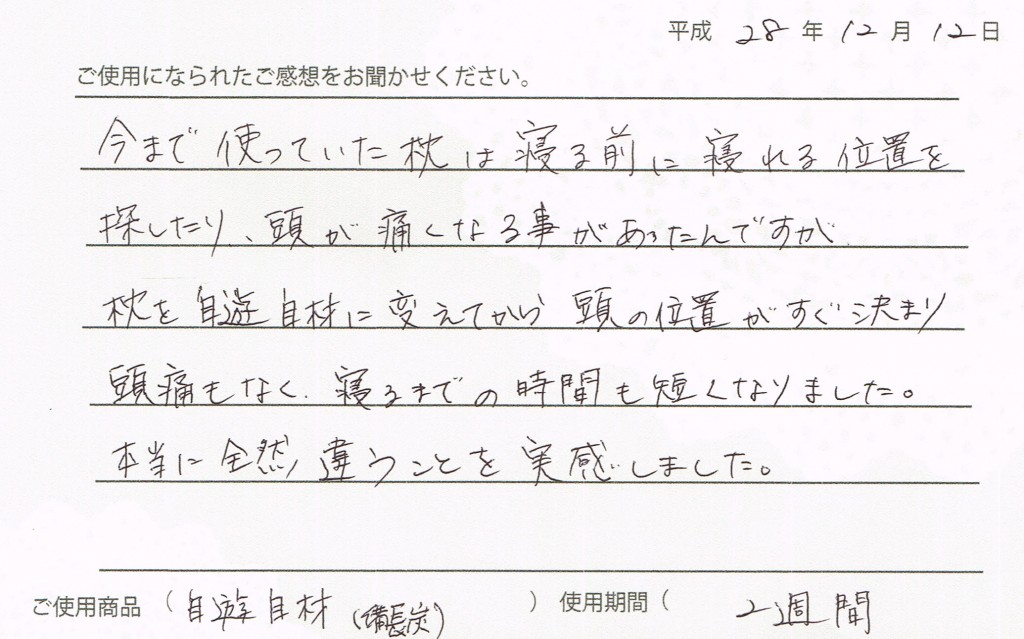 平成 28 年 12 月 12 日
ご使用になられたご感想をお聞かせください。
今まで使っていた枕は寝る前に寝れる位置を
探したり、頭が痛くなる事があったんですが、
枕を自遊自材に変えてから頭の位置がすぐ決まり
頭痛もなく、寝るまでの時間も短くなりました。
本当に全然違うことを実感しました。
ご使用商品 ( 自遊自材 (備長炭) ) 使用期間 ( 2週間